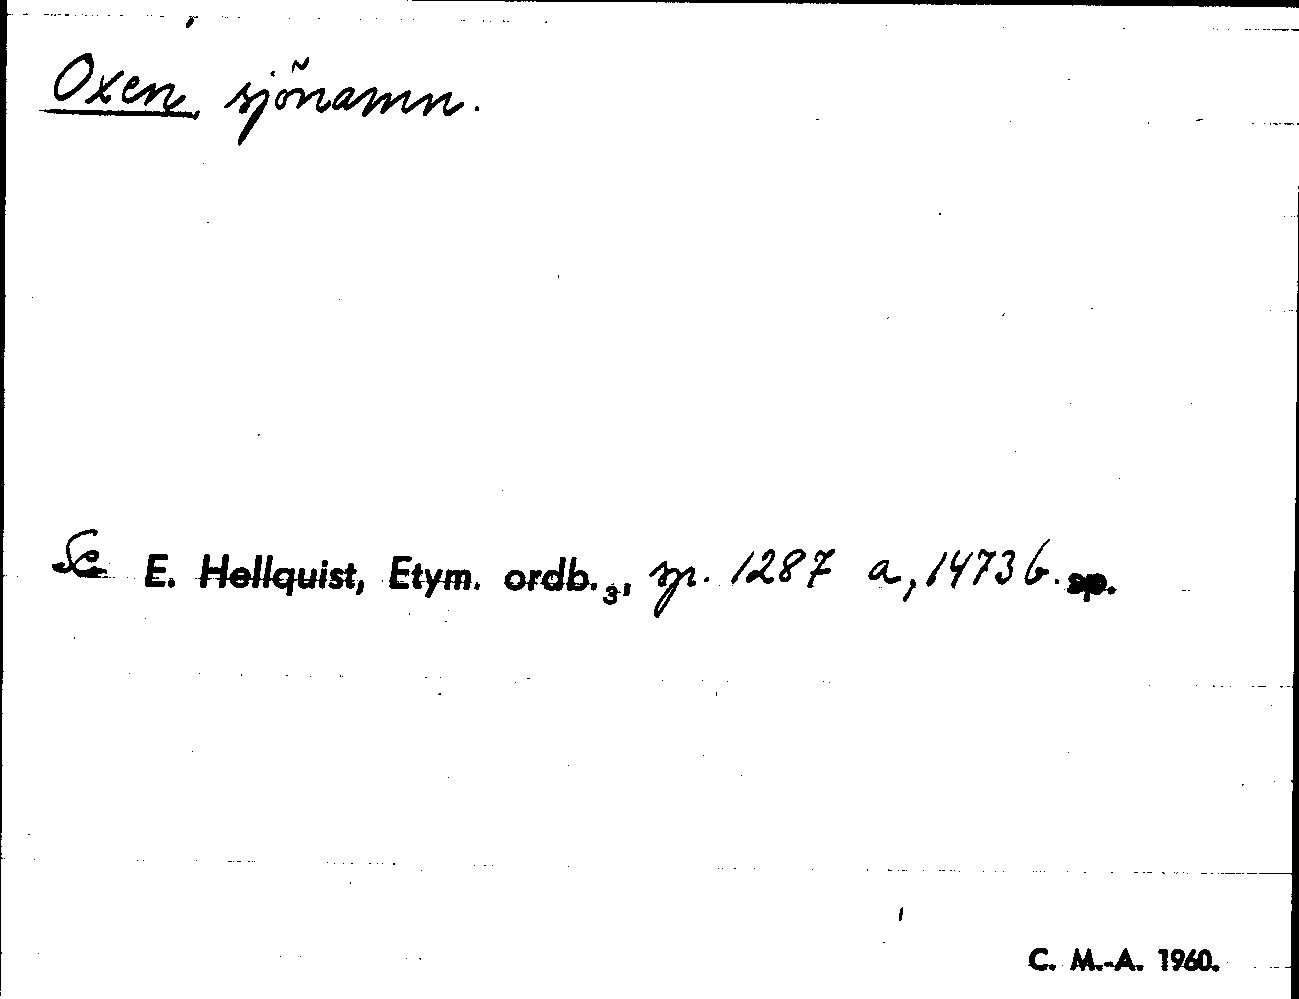 Oxen, sjönamn.
Se E. Hellquist, Etym. ordb.₃, sp. 1287 a, 1473 b. sp.
C. M.-A. 1960.